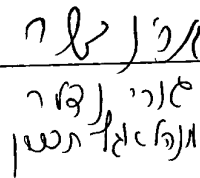 אורי נדלר
מנהל אגף תכנון